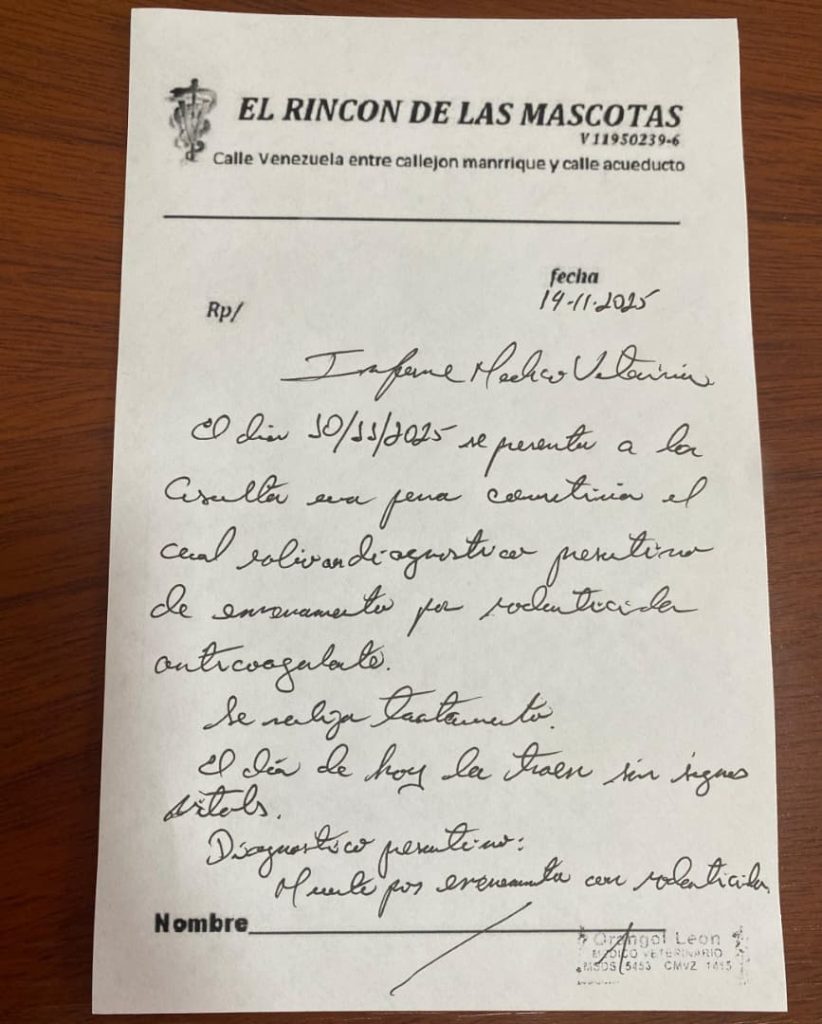 EL RINCON DE LAS MASCOTAS
V11950239-6
Calle Venezuela entre callejon manrrique y calle acueducto
fecha
14-11-2025
Rp/
Informe Medico Veterinario
El dia 10/11/2025 se presenta a la
consulta una canina el
cual diagnostico presuntivo
de envenenamiento por rodenticida
anticoagulante.
Se realiza tratamiento.
El día de hoy la traen sin signos
vitales.
Diagnostico presuntivo:
Muerte por envenenamiento con rodenticida
Nombre
Orangel Leon
MEDICO VETERINARIO
MSDS 5453 CMVZ 1415